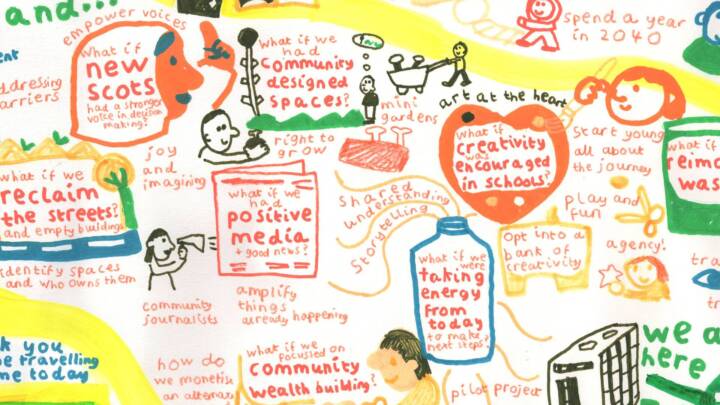 and...
empower voices
What if
new
Scots
had a stronger
voice in decision
making?
What if we
had
community
designed
spaces?
spend a year
in 2040
mini
gardens
art at the heart
What if
creativity
was
encouraged
in schools?
start young
all about
the journey
what if
joy
and
imagining
right to
grow
what if we
reclaim
the streets?
and empty buildings
what if we
had
positive
media
+ good news?
shared
understanding
Storytelling
play and
fun
agency!
Opt into a
bank of
creativity
what if we
were
taking
energy
from
today
to make
next steps
identify spaces
and who owns them
community
journalists
amplify
things
already happening
how do
we monetise
what if we
focussed on
community
wealth building?
pilot project
we a
here
travelling
today